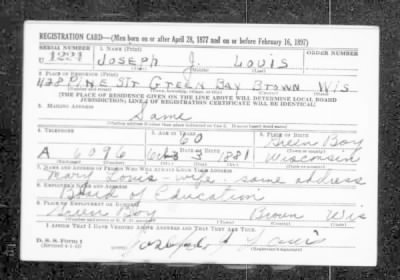 REGISTRATION CARD—(Men born on or after April 28, 1877 and on or before February 16, 1897)
SERIAL NUMBER 1. NAME (Print) ORDER NUMBER
U 1221 JOSEPH J. LOUIS
2. PLACE OF RESIDENCE (Print)
1128 PINE STR GREEN BAY BROWN WIS
[THE PLACE OF RESIDENCE GIVEN ON THE LINE ABOVE WILL DETERMINE LOCAL BOARD
JURISDICTION; LINE 2 OF REGISTRATION CERTIFICATE WILL BE IDENTICAL]
3. MAILING ADDRESS
Same
4. TELEPHONE 5. AGE IN YEARS 6. PLACE OF BIRTH
60 Green Bay
DATE OF BIRTH
A 6096 3 1881 Wisconsin
7. NAME AND ADDRESS OF PERSON WHO WILL ALWAYS KNOW YOUR ADDRESS
Mary Louis wife same address
8. EMPLOYER'S NAME AND ADDRESS
Board of Education
9. PLACE OF EMPLOYMENT OR BUSINESS
Green Bay Brown Wis
I AFFIRM THAT I HAVE VERIFIED ABOVE ANSWERS AND THAT THEY ARE TRUE.
D. S. S. Form 1
Joseph J Louis